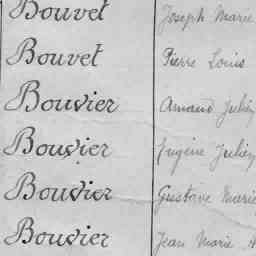 Bouvet Joseph Marie
Bouvet Pierre Louis
Bouvier Armand Julien
Bouvier Eugène Julien
Bouvier Gustave Marie
Bouvier Jean Marie